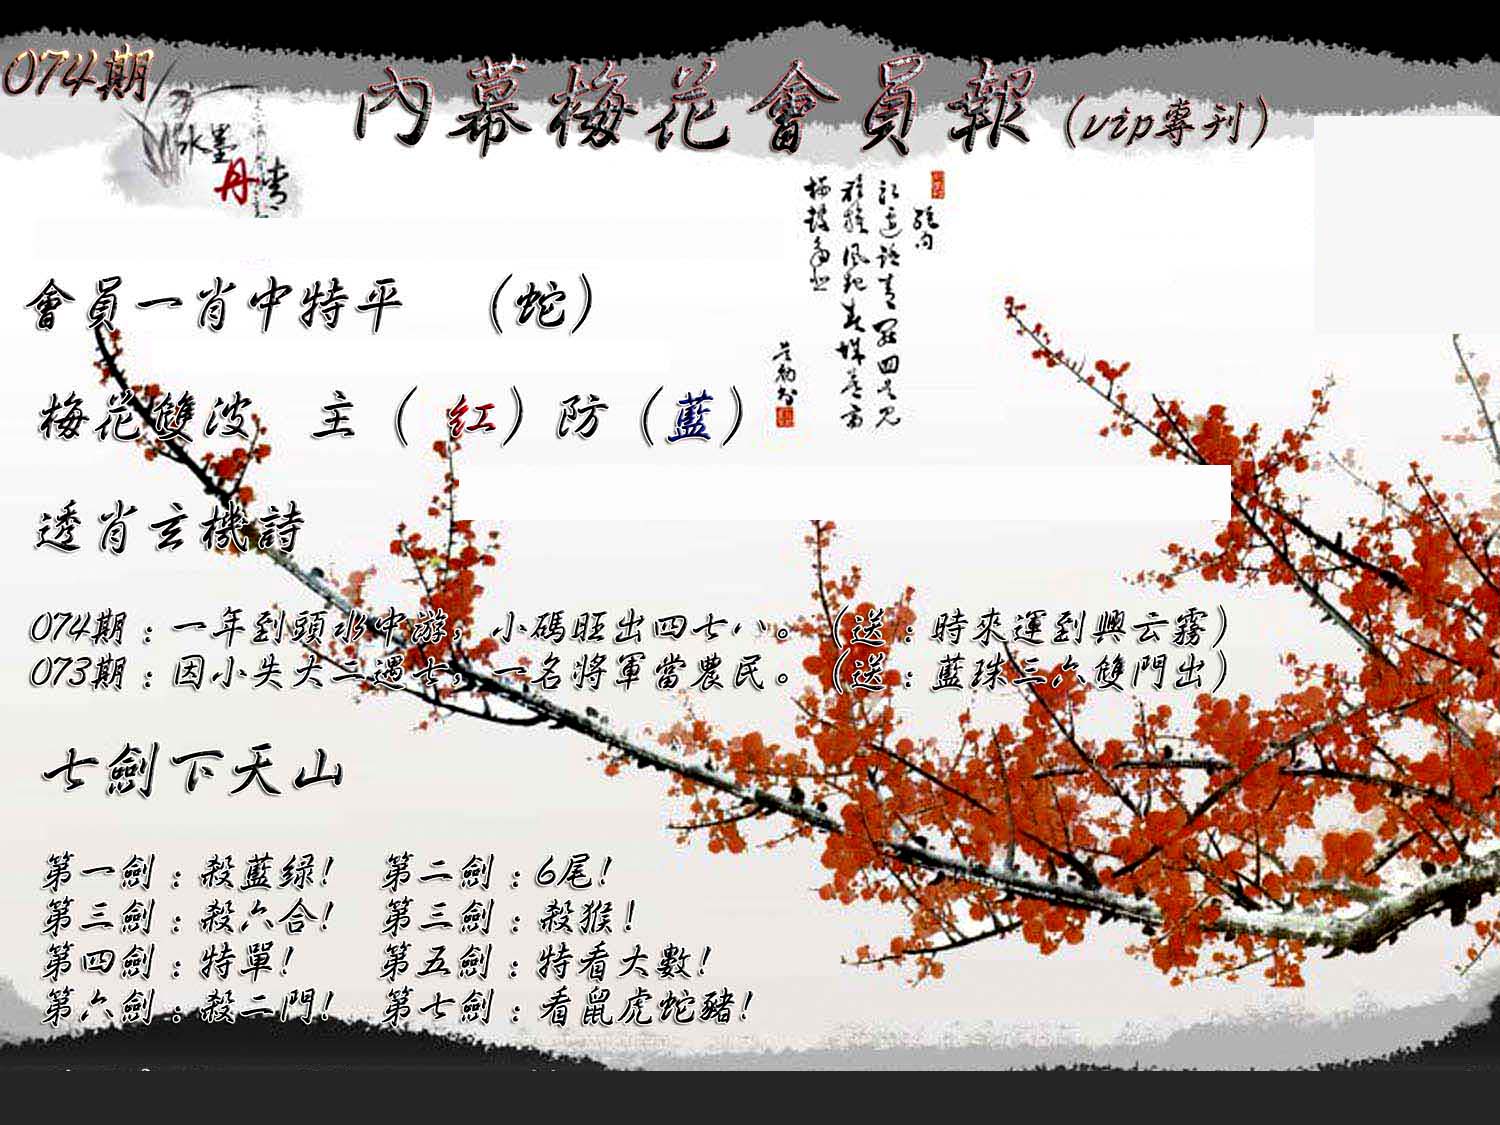 074期
內幕梅花會員報(vip專刊)
水墨
丹青
會員一肖中特平 (蛇)
梅花雙波 主(紅)防(藍)
透肖玄機詩
074期:一年到頭水中游,小碼旺出四七八。(送:時來運到興云霧)
073期:因小失大二遇七,一名將軍當農民。(送:藍珠三六雙門出)
七劍下天山
第一劍:殺藍绿! 第二劍:6尾!
第三劍:殺六合! 第三劍:殺猴!
第四劍:特單! 第五劍:特看大數!
第六劍:殺二門! 第七劍:看鼠虎蛇豬!